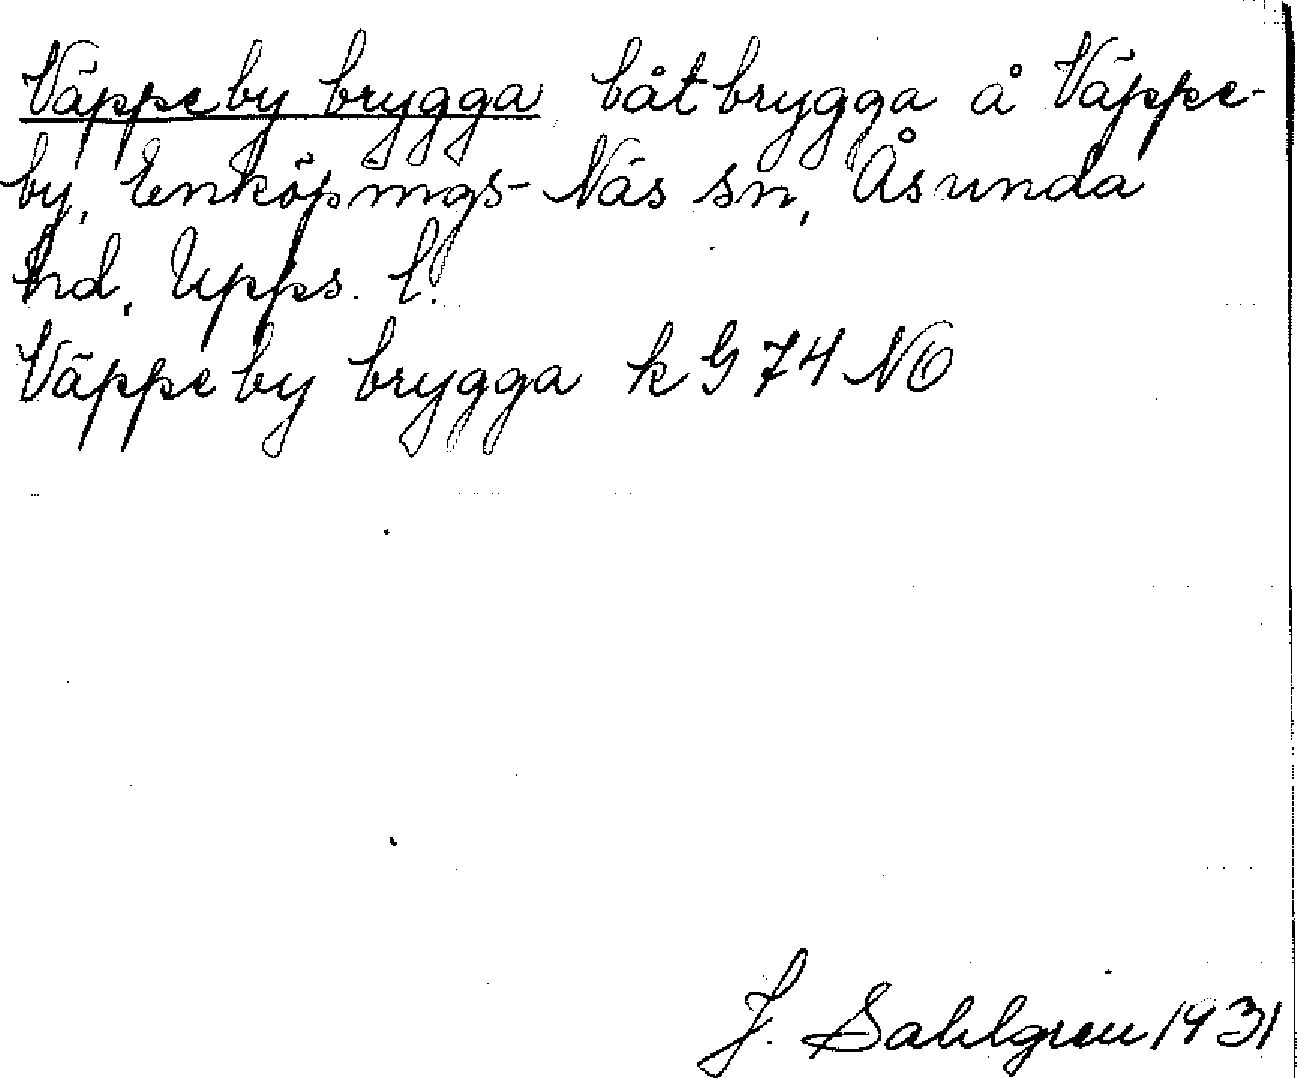 Väppeby brygga båtbrygga å Väppe-
by, Enköpings-Näs sn, Åsunda
hd, Upps. l.
Väppeby brygga k G 74 NO
J. Sahlgren 1931